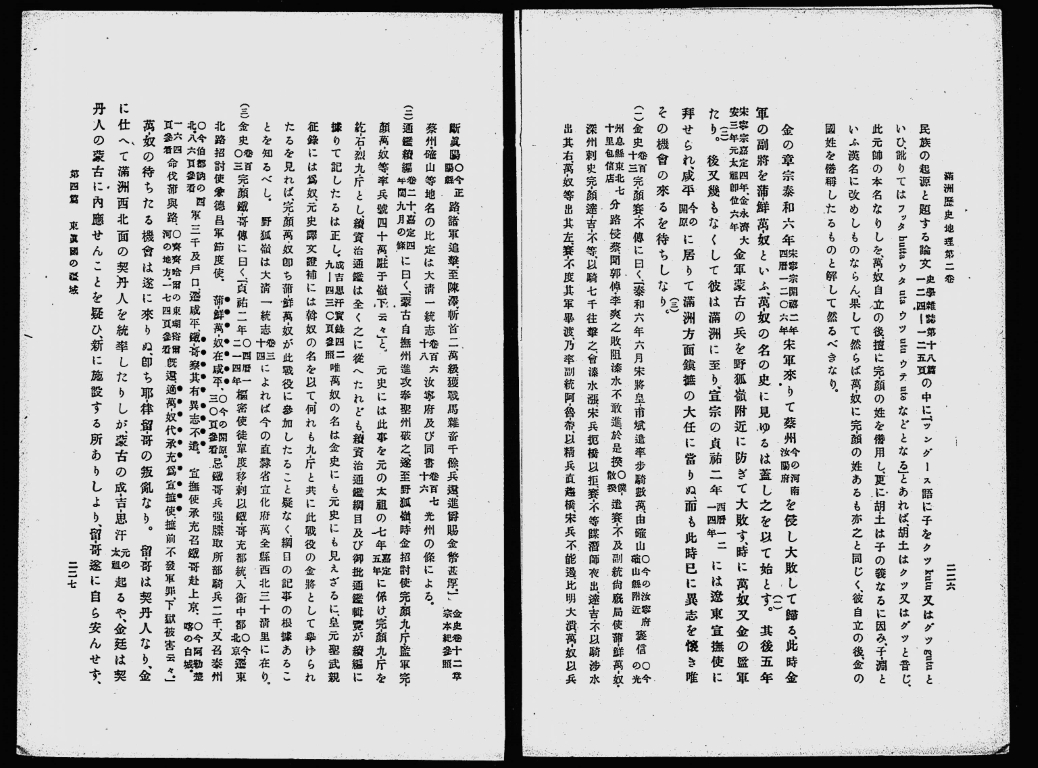 滿洲歷史地理第二卷
二二六
民族の起源と題する論文 史學雜誌第十八篇 一二四—一二五頁 の中に「ツングース語に子をクツ kutu 又はグツ gutu と
いひ、訛りてはフッタ hutta ウタ uta ウツ utu ウテ ute などとなる」とあれば、胡土はクツ又はグツと音じ、
此元帥の本名なりしを、萬奴自立の後擅に完顏の姓を僭用し、更に胡土は子の義なるに因み子淵と
いふ漢名に改めしものならん、果して然らば萬奴に完顏の姓あるも亦之と同じく、彼自立の後金の
國姓を僭稱したるものと解して然るべきなり。
金の章宗泰和六年 宋寧宗開禧二年 西曆一二〇六年 宋軍來りて蔡州 今の河南 汝陽府 を侵し大敗して歸る、此時金
軍の副將を蒲鮮萬奴といふ、萬奴の名の史に見ゆるは蓋し之を以て始とす。(一) 其後五年
宋寧宗嘉定四年、金永濟大 安三年元太祖卽位六年 金軍蒙古の兵を野狐嶺附近に防ぎて大敗す、時に萬奴又金の監軍
たり。(二) 後又幾もなくして彼は滿洲に至り、宣宗の貞祐二年 西曆一二 一四年 には遼東宣撫使に
拜せられ咸平 今の 開原 に居りて滿洲方面鎭撫の大任に當りぬ、而も此時已に異志を懷き唯
その機會の來るを待ちしなり。(三)
(一) 金史 卷百 十三 完顏賽不傳に曰く、「泰和六年六月宋將皇甫斌遣率步騎數萬由確山 〇今の汝寧府 確山縣附近 褒信 〇今 の光
州息縣東北七 十里包信店 分路侵蔡聞郭倬李爽之敗阻溱水不敢進於是揆 〇僕 散揆 遣賽不及副統尙厩局使蒲鮮萬奴、
深州刺史完顏達吉不等、以騎七千往擊之、會溱水漲宋兵扼橋以拒、賽不等謀潛師夜出、達吉不以騎涉水
出其右萬奴等出其左、賽不度其軍畢渡、乃率副統阿魯帶以精兵直趨橋、宋兵不能遏、比明大潰、萬奴以兵
斷眞陽 〇今正 陽縣 路、諸軍追擊至陳澤、斬首二萬級獲戰馬雜畜千餘、兵還進爵賜金幣甚厚」 金史卷十二章 宗本紀參照
蔡州確山等地名の比定は大淸一統志 卷百六 十八 汝寧府及び同書 卷百七 十六 光州の條による。
(二) 通鑑續編 卷二十嘉定四 年閏九月の條 に曰く、「蒙古自撫州進攻奉聖州破之、遂至野狐嶺、時金招討使完顏九斤監軍完
顏萬奴等率兵號四十萬駐于嶺下云々」と。元史には此事を元の太祖の七年 嘉定 五年 に係け、完顏九斤を
紇石烈九斤とし續資治通鑑は全く之に從へたれども、續資治通鑑綱目及び御批通鑑輯覽が續編に
據りて記したるは正し、 成吉思汗實錄四二 九—四三〇頁參照 唯萬奴の名は金史にも元史にも見えざるに、皇元聖武親
征錄には爲奴、元史譯文證補には斡奴の名を以て何れも九斤と共に此戰役の金將として擧げられ
たるを見れば完顏萬奴卽ち蒲鮮萬奴が此戰役に參加したること疑なく、綱目の記事の根據あるこ
とを知るべし。野狐嶺は大淸一統志 卷三 十四 によれば今の直隷省宣化府萬全縣西北三十淸里に在り、
(三) 金史 卷百 〇三 完顏鐵哥傳に曰く、「貞祐二年 〇西曆一 二一四年 樞密使徒單度移剌以鐵哥充都統、入衞中都 〇今 北京 遷東
北路招討使兼德昌軍節度使、蒲鮮萬奴在咸平、 〇今の開原 三〇頁參看 忌鐵哥兵强、牒取所部騎兵二千、又召泰州
〇今伯都訥の西 北八六頁參看 軍三千及戶口、遷咸平、鐵哥察其有異志不遣。宣撫使承充召鐵哥赴上京、 〇今阿勒楚 喀の白城
一六四 頁參看 命伐蒲與路 〇齊齊哈爾の東瑚裕爾 河の地方一七四頁參看 旣還、適萬奴代承充爲宣撫使、摭前不發軍罪、下獄被害云々」
萬奴の待ちたる機會は遂に來りぬ、卽ち耶律留哥の叛亂なり。留哥は契丹人なり、金
に仕へて滿洲西北面の契丹人を統率したりしが、蒙古の成吉思汗 元の 太祖 起るや、金廷は契
丹人の蒙古に內應せんことを疑ひ、新に施設する所ありしより、留哥遂に自ら安んせず、
第四篇 東眞國の疆域
二二七